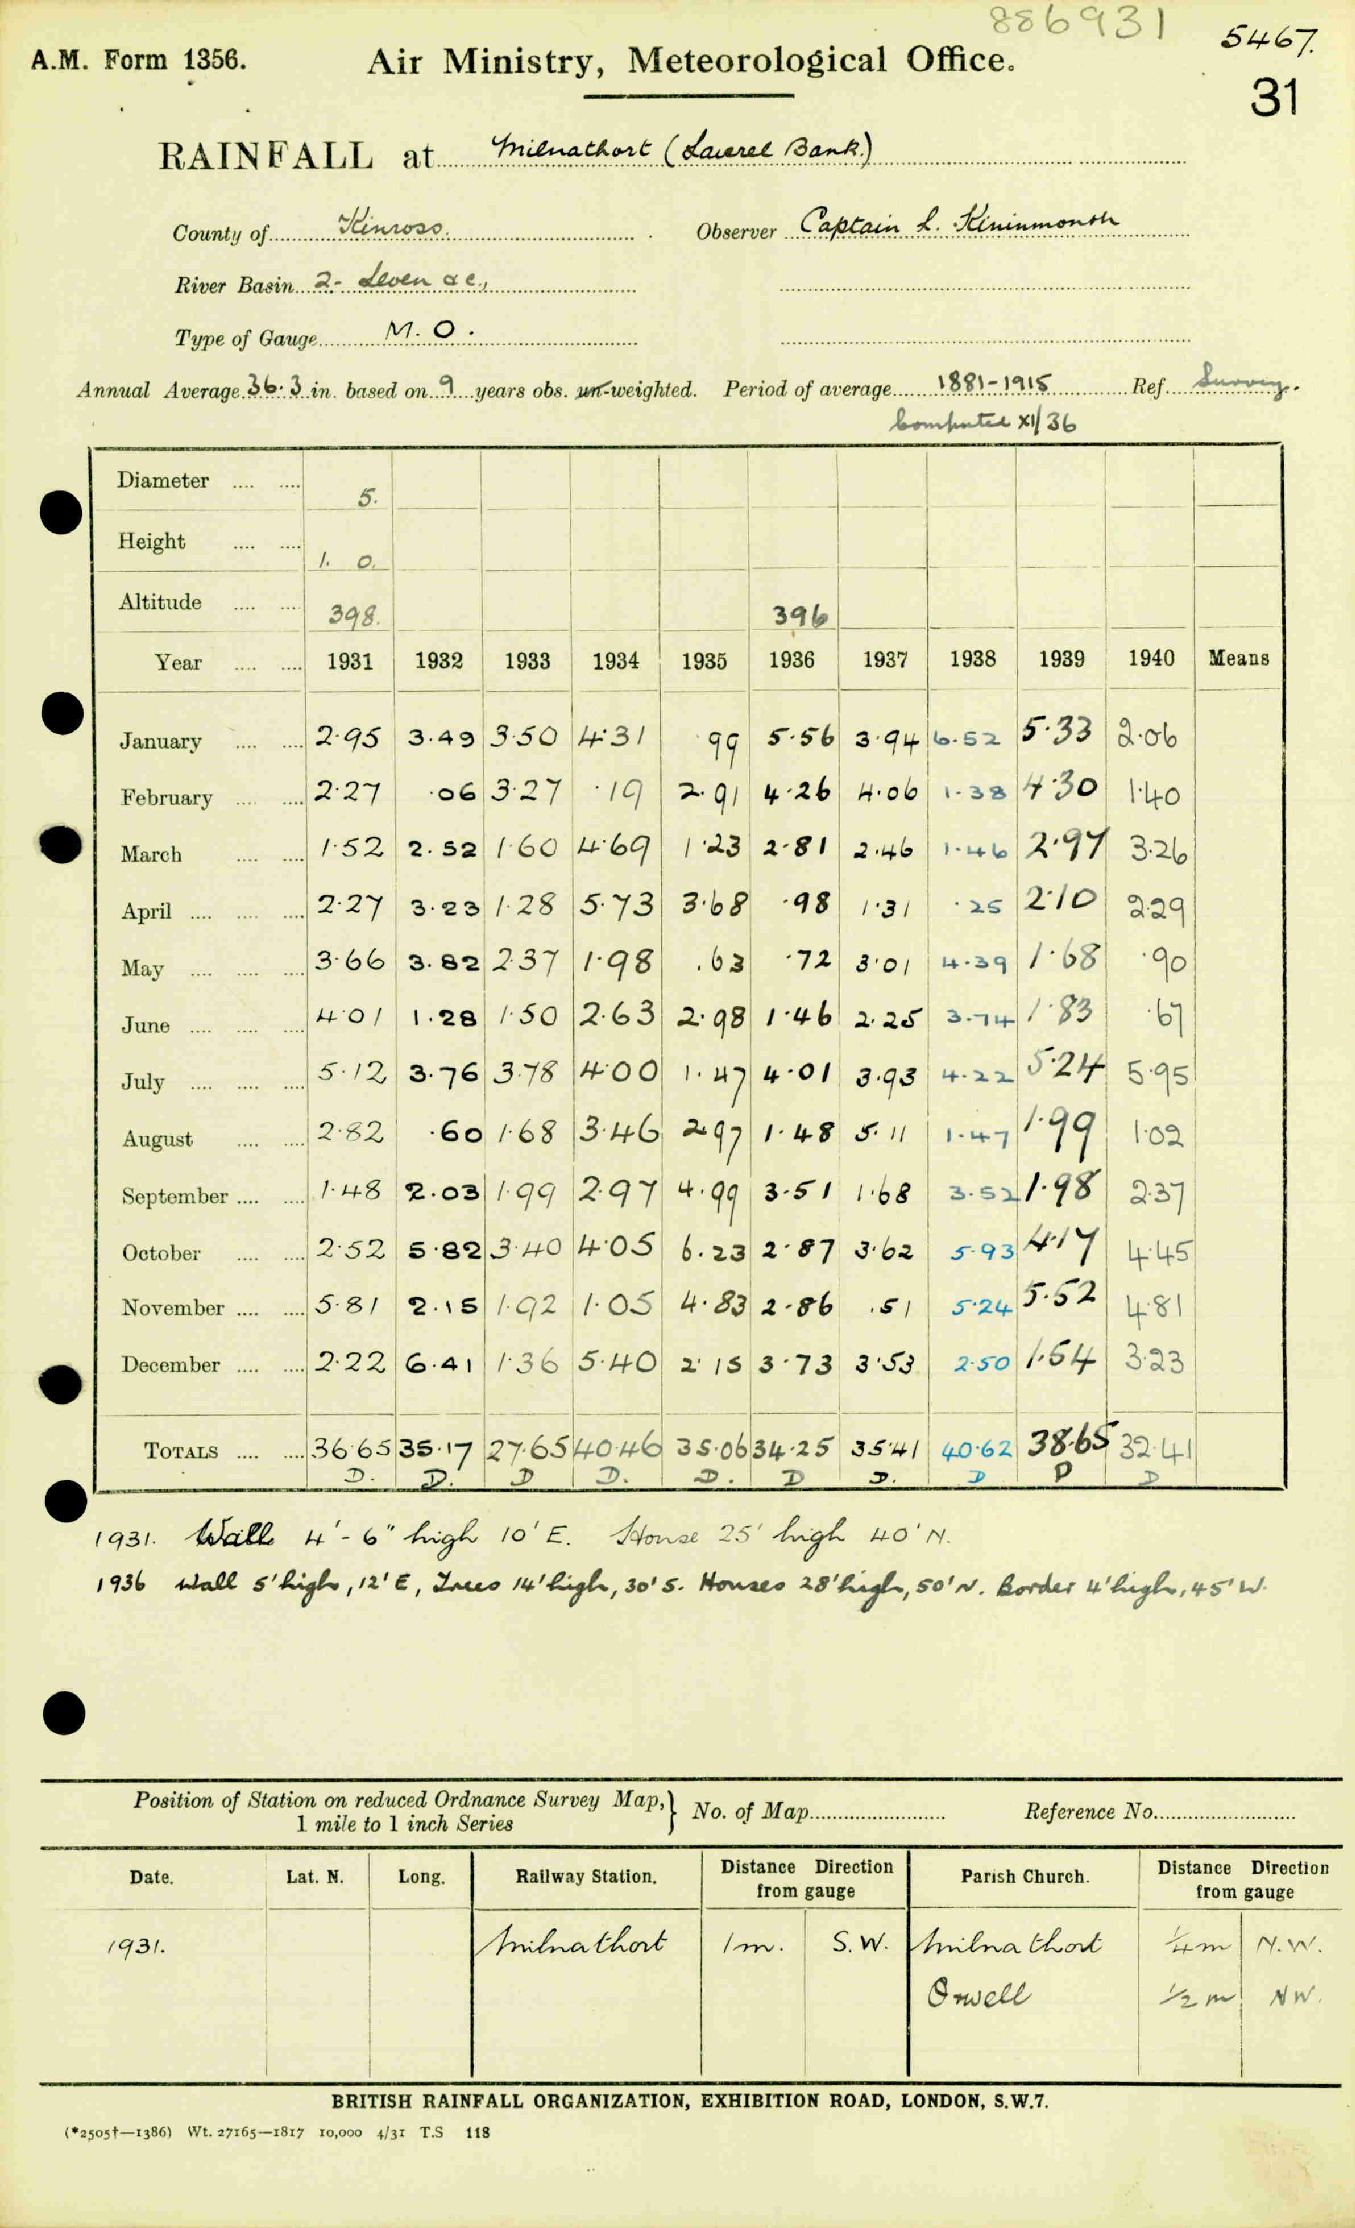 886931
5467.
A.M. Form 1356.
Air Ministry, Meteorological Office.
31
RAINFALL at Milnathort (Laurel Bank.)
County of Kinross. Observer Captain L. Kininmonth
River Basin 2- Leven &c.,
Type of Gauge M.O.
Annual Average 36.3 in. based on 9 years obs. un-weighted. Period of average 1881-1915 Ref. Survey.
Computed XI/36
Diameter .... .... 5.
Height .... .... 1. 0.
Altitude .... .... 398. 396
Year .... .... 1931 1932 1933 1934 1935 1936 1937 1938 1939 1940 Means
January .... .... 2.95 3.49 3.50 4.31 .99 5.56 3.94 6.52 5.33 2.06
February .... .... 2.27 .06 3.27 .19 2.91 4.26 4.06 1.38 4.30 1.40
March .... .... 1.52 2.52 1.60 4.69 1.23 2.81 2.46 1.46 2.97 3.26
April .... .... .... 2.27 3.23 1.28 5.73 3.68 .98 1.31 .25 2.10 2.29
May .... .... .... 3.66 3.82 2.37 1.98 .63 .72 3.01 4.39 1.68 .90
June .... .... .... 4.01 1.28 1.50 2.63 2.98 1.46 2.25 3.74 1.83 .67
July .... .... .... 5.12 3.76 3.78 4.00 1.47 4.01 3.93 4.22 5.24 5.95
August .... .... 2.82 .60 1.68 3.46 2.97 1.48 5.11 1.47 1.99 1.02
September .... .... 1.48 2.03 1.99 2.97 4.99 3.51 1.68 3.52 1.98 2.37
October .... .... 2.52 5.82 3.40 4.05 6.23 2.87 3.62 5.93 4.17 4.45
November .... .... 5.81 2.15 1.92 1.05 4.83 2.86 .51 5.24 5.52 4.81
December .... .... 2.22 6.41 1.36 5.40 2.15 3.73 3.53 2.50 1.54 3.23
TOTALS .... .... 36.65 35.17 27.65 40.46 35.06 34.25 35.41 40.62 38.65 32.41
D. D. D D. D. D D. D D D
1931. Wall 4'-6" high 10' E. House 25' high 40' N.
1936 Wall 5' high, 12' E, Trees 14' high, 30' S. Houses 28' high, 50' N. Border 4' high, 45' W.
Position of Station on reduced Ordnance Survey Map,} No. of Map Reference No.
1 mile to 1 inch Series
Date. Lat. N. Long. Railway Station. Distance Direction from gauge Parish Church. Distance Direction from gauge
1931. Milnathort 1m. S.W. Milnathort 1/4m N.W.
Orwell 1/2m NW.
BRITISH RAINFALL ORGANIZATION, EXHIBITION ROAD, LONDON, S.W.7.
(*2505†—1386) Wt. 27165—1817 10,000 4/31 T.S 118